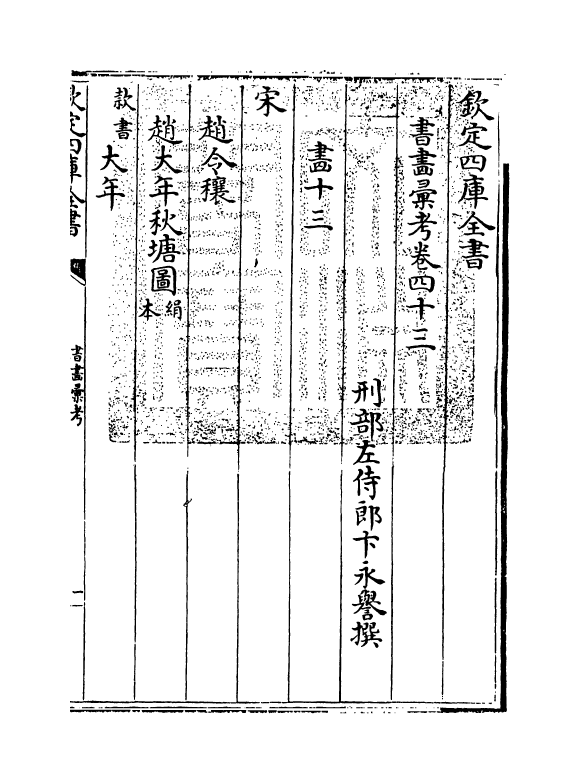 欽定四庫全書
書畫彚考卷四十三
刑部左侍郎卞永譽撰
畫十三
宋
趙令穰
趙大年秋塘圖絹本
款書大年
欽定四庫全書
書畫彚考
一